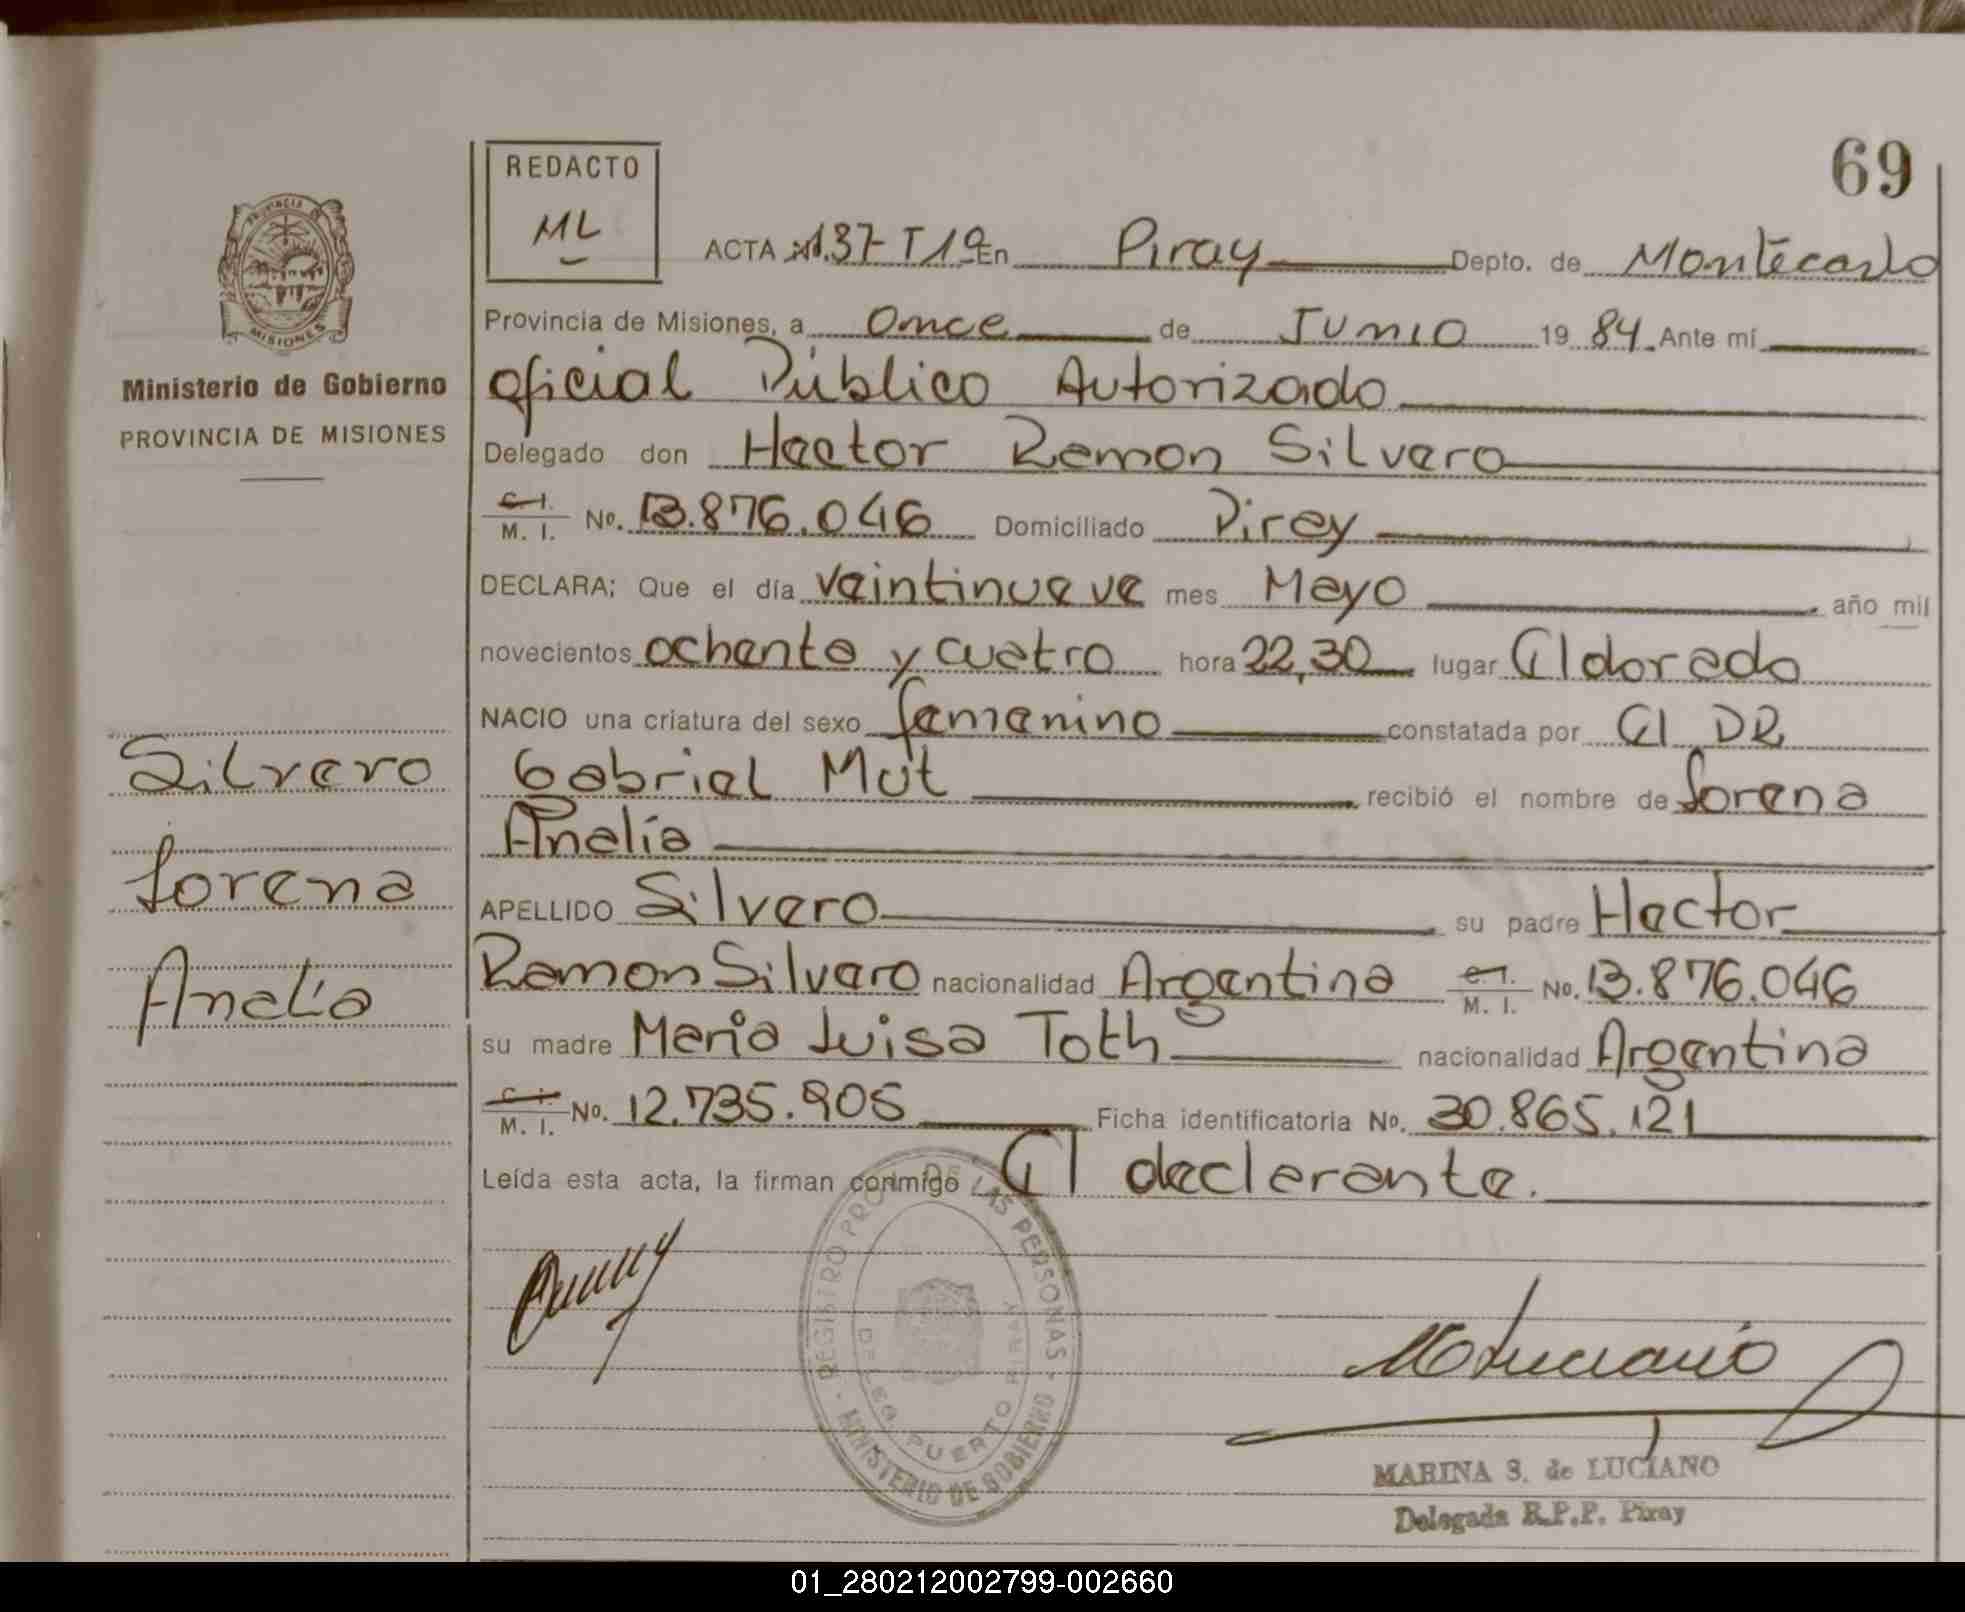 69
REDACTO
ML
ACTA 137-T1º En Piray Depto. de Montecarlo
Provincia de Misiones, a once de Junio 1984. Ante mí
Oficial Público Autorizado
Delegado don Hector Ramon Silvero
C. I. M. I. No. 13.876.046 Domiciliado Piray
DECLARA; Que el día veintinueve mes Mayo año mil
novecientos ochenta y cuatro hora 22,30 lugar Eldorado
NACIO una criatura del sexo femenino constatada por El DR
Gabriel Mut recibió el nombre de Lorena
Analía
APELLIDO Silvero su padre Hector
Ramon Silvero nacionalidad Argentina C. I. M. I. No. 13.876.046
su madre Maria Luisa Toth nacionalidad Argentina
C. I. M. I. No. 12.735.905 Ficha identificatoria No. 30.865.121
Leída esta acta, la firman conmigo El declarante.
PROVINCIA DE
MISIONES
Ministerio de Gobierno
PROVINCIA DE MISIONES
Silvero
Lorena
Analía
REGISTRO PROV. DE LAS PERSONAS
DELEG. PUERTO PIRAY
MINISTERIO DE GOBIERNO
MARINA S. de LUCIANO
Delegada R.P.P. Piray
01_280212002799-002660